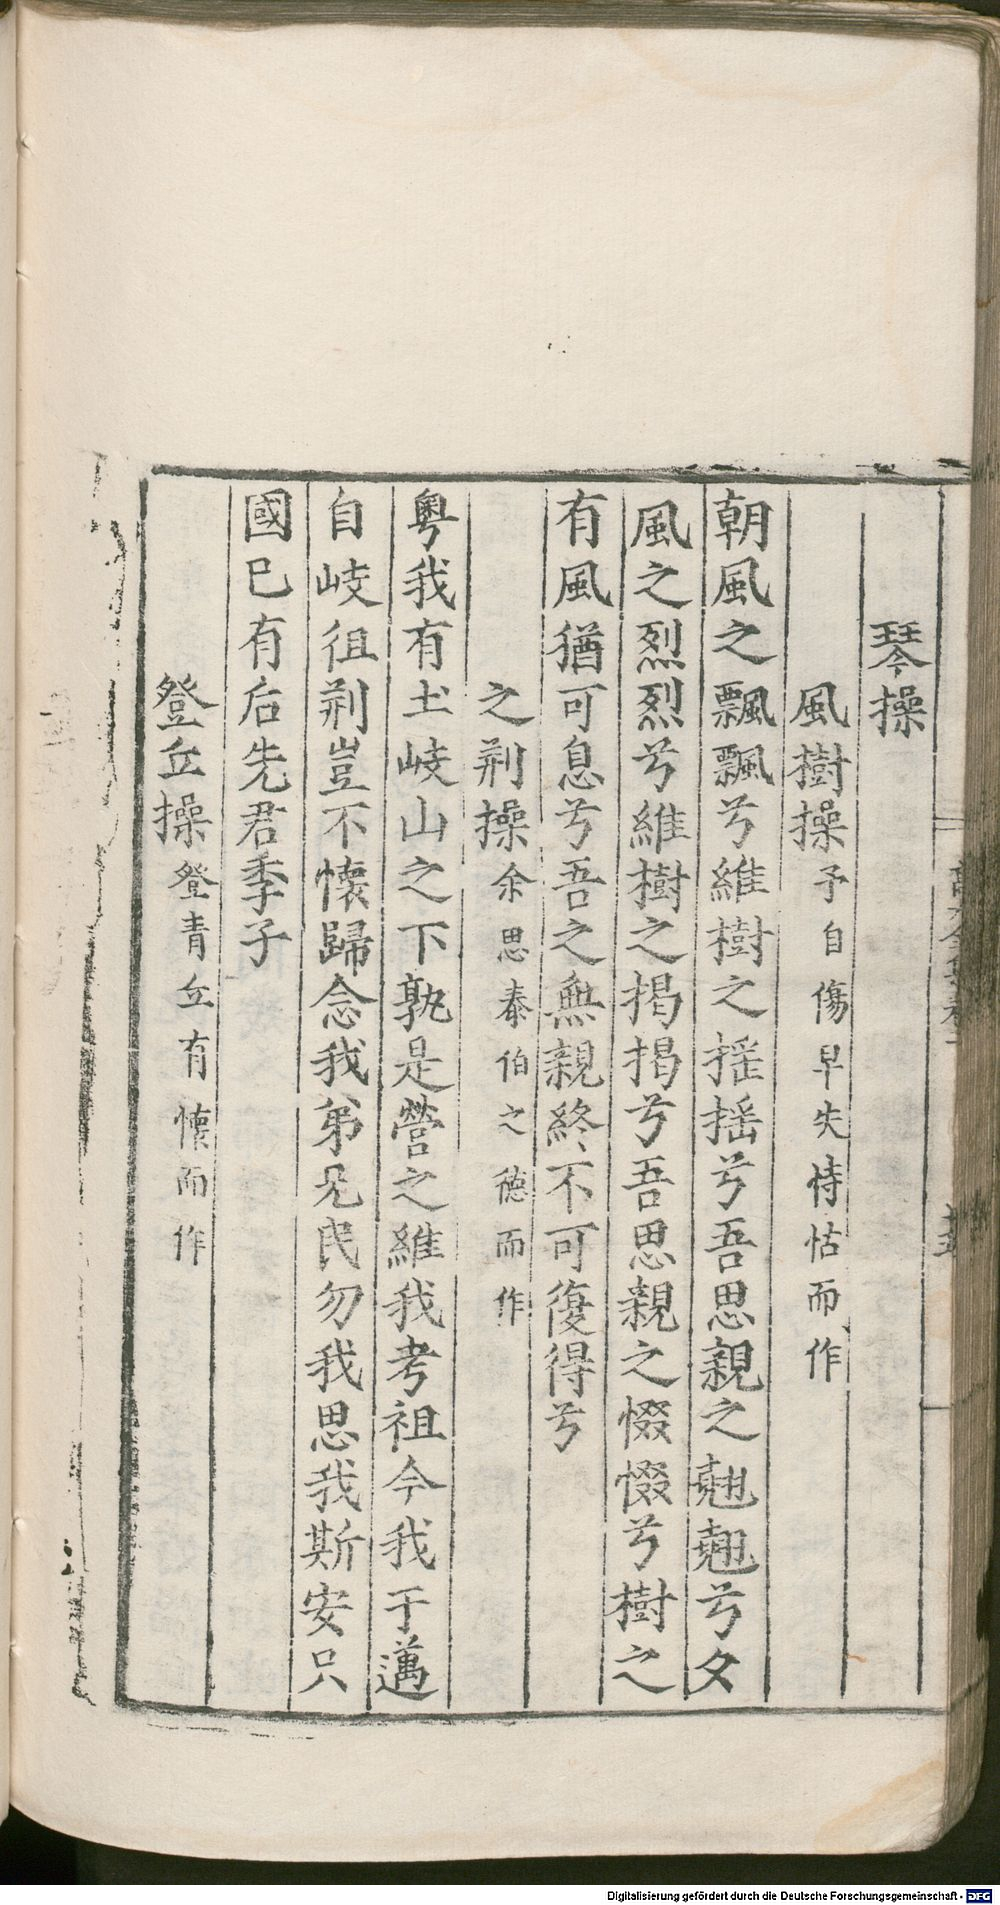 琴操
風樹操予自傷早失恃怙而作
朝風之飄飄兮維樹之揺揺兮吾思親之翹翹兮夕
風之烈烈兮維樹之掲掲兮吾思親之惙惙兮樹之
有風猶可息兮吾之無親終不可復得兮
之荆操余思泰伯之徳而作
粤我有土岐山之下孰是營之維我考祖今我于邁
自岐徂荆豈不懐歸念我弟兄民勿我思我斯安只
國巳有后先君季子
登丘操登青丘有懐而作
Digitalisierung gefördert durch die Deutsche Forschungsgemeinschaft - DFG